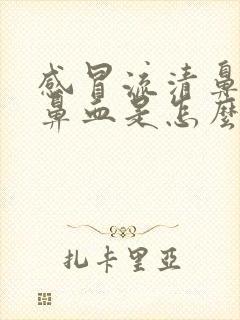 感冒流清鼻
鼻血是怎麼
扎卡里亞